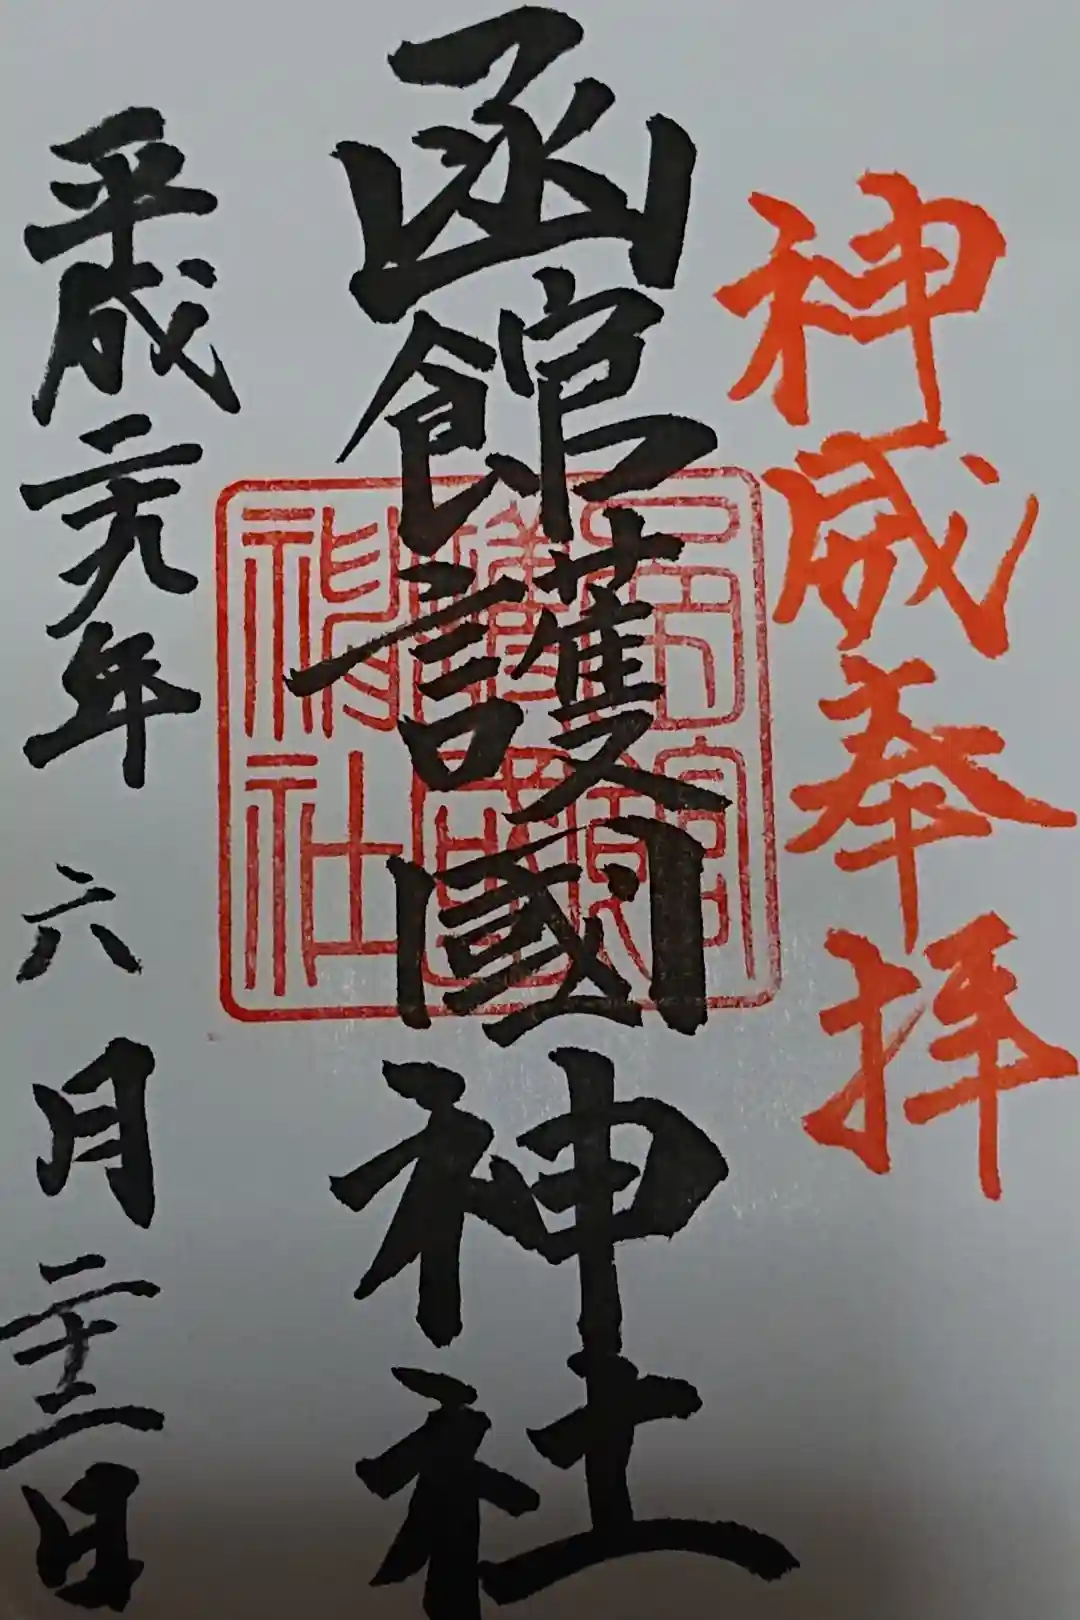 神威奉拝
函館護國神社
平成二十九年 六月二十二日
函館
護國
神社